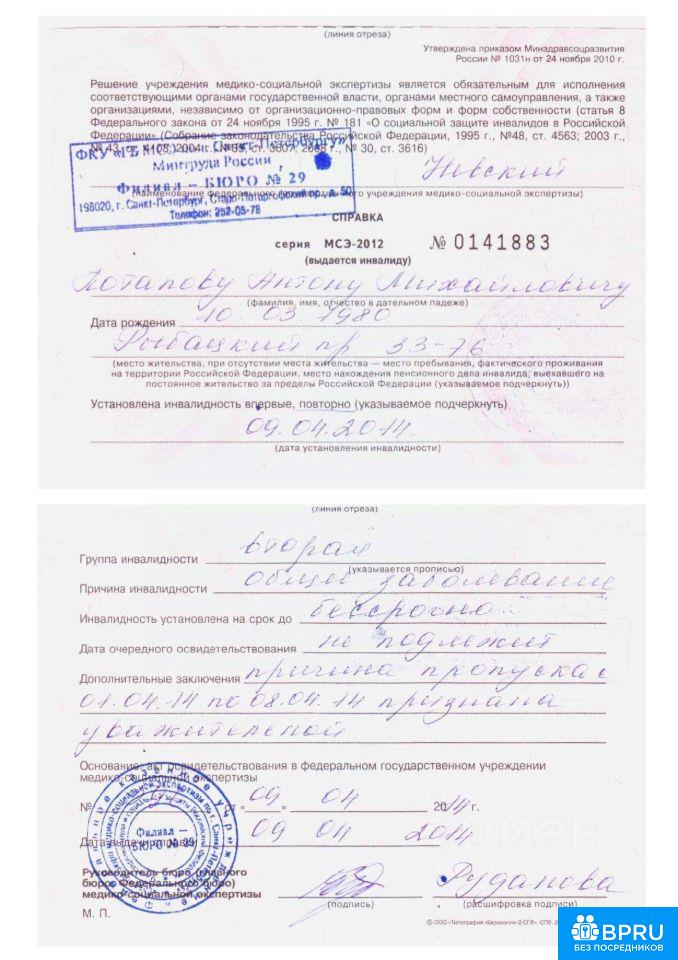 (линия отреза)
Утверждена приказом Минздравсоцразвития
России № 1031н от 24 ноября 2010 г.
Решение учреждения медико-социальной экспертизы является обязательным для исполнения
соответствующими органами государственной власти, органами местного самоуправления, а также
организациями, независимо от организационно-правовых форм и форм собственности (статья 8
Федерального закона от 24 ноября 1995 г. № 181 «О социальной защите инвалидов в Российской
Федерации» (Собрание законодательства Российской Федерации, 1995 г., №48, ст. 4563; 2003 г.,
№ 43, ст. 4108; 2004 г., ст. 3607; № 30, ст. 3616)
г. Санкт-Петербургу»
Минтруда России
Филиал – БЮРО № 29
198020, г. Санкт-Петербург, Старо-Петергофский пр., д. 50
Телефон: 252-05-78
Невский
(наименование федерального государственного учреждения медико-социальной экспертизы)
СПРАВКА
серия МСЭ-2012 № 0141883
(выдается инвалиду)
Потапову Антону Михайловичу
(фамилия, имя, отчество в дательном падеже)
Дата рождения 10 03 1980
Рыбацкий пр 33-76
(место жительства, при отсутствии места жительства — место пребывания, фактического проживания
на территории Российской Федерации, место нахождения пенсионного дела инвалида, выехавшего на
постоянное жительство за пределы Российской Федерации (указываемое подчеркнуть))
Установлена инвалидность впервые, повторно (указываемое подчеркнуть)
09.04.2014.
(дата установления инвалидности)
(линия отреза)
Группа инвалидности вторая
(указывается прописью)
Причина инвалидности общее заболевание
Инвалидность установлена на срок до бессрочно
Дата очередного освидетельствования не подлежит
Дополнительные заключения причина пропуска с
01.04.14 по 08.04.14 признана
уважительной
Основание: акт освидетельствования в федеральном государственном учреждении
медико-социальной экспертизы
№ от «09» 04 2014 г.
Дата выдачи справки 09 04 2014
Филиал –
БЮРО № 29
Руководитель бюро (главного
бюро, Федерального бюро)
медико-социальной экспертизы Руданова
(подпись) (расшифровка подписи)
М. П.
BPRU
БЕЗ ПОСРЕДНИКОВ